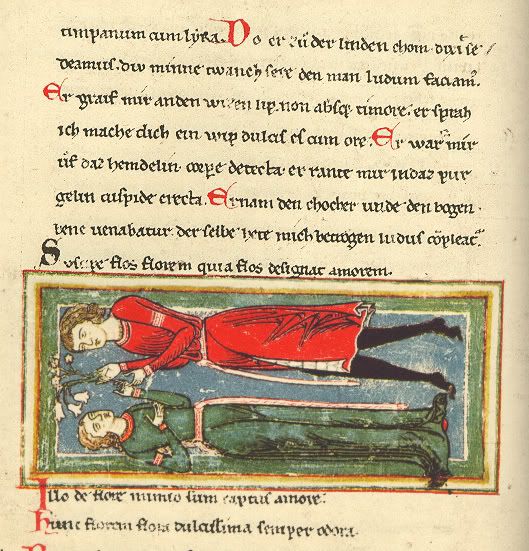 timpanum cum lyra. Do er zů der linden chom dixit se
deamus. div minne twanch sere den man ludum faciam᾽.
Er graif mir an den wizen lip. non absq; timore. er sprah
ich mache dich ein wip dulcis es cum ore. Er warf mir
ůf daz hemdelin corp̄e detecta. er rante mir in daz pur
gelin cuspide erecta. Er nam den chocher unde den bogen
bene venabatur. der selbe hete mich betrogen ludus cōpleat᾽.
Suscipe flos florem quia flos designat amorem.
Illo de flore nimio sum captus amore.
Hunc florem flora dulcissima semper odora.